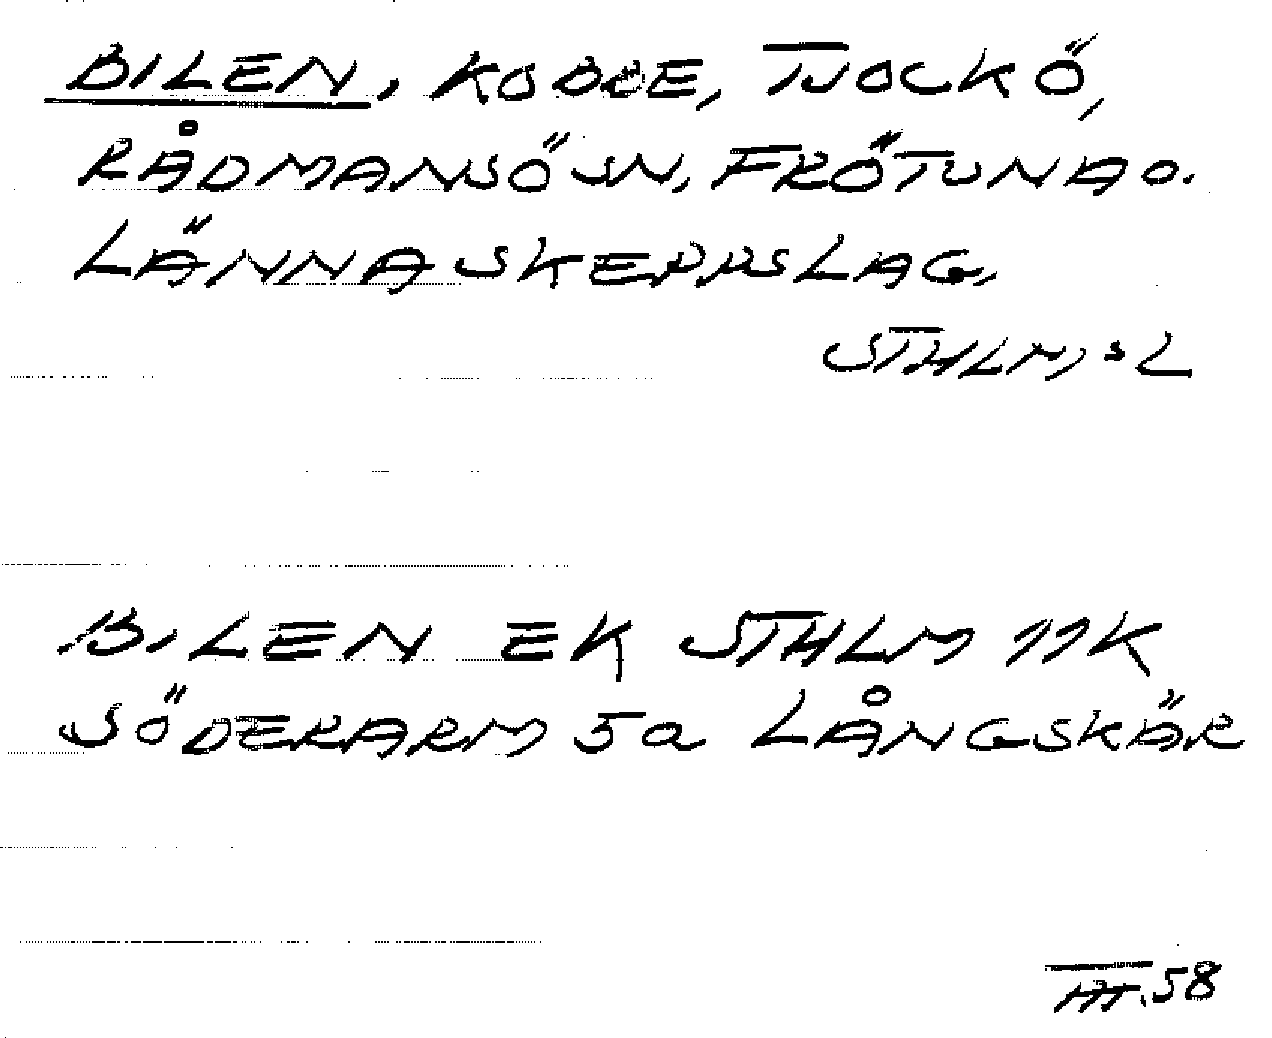 BILEN, KOBBE, TJOCKÖ,
RÅDMANSÖ SN, FRÖTUNA O.
LÄNNA SKEPPSLAG,
STHLM,S L
BILEN EK STHLM 11K
SÖDERARM 5a LÅNGSKÄR
58